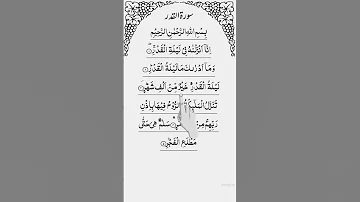 سورة القدر
بِسْمِ اللهِ الرَّحْمٰنِ الرَّحِيْمِ
اِنَّاۤ اَنْزَلْنٰهُ فِيْ لَيْلَةِ الْقَدْرِ ۝
وَمَاۤ اَدْرٰىكَ مَا لَيْلَةُ الْقَدْرِ ۝
لَيْلَةُ الْقَدْرِ خَيْرٌ مِّنْ اَلْفِ شَهْرٍ ۝
تَنَزَّلُ الْمَلٰٓئِكَةُ وَالرُّوْحُ فِيْهَا بِاِذْنِ
رَبِّهِمْ مِنْ سَلٰمٌ هِيَ حَتّٰى
مَطْلَعِ الْفَجْرِ ۝